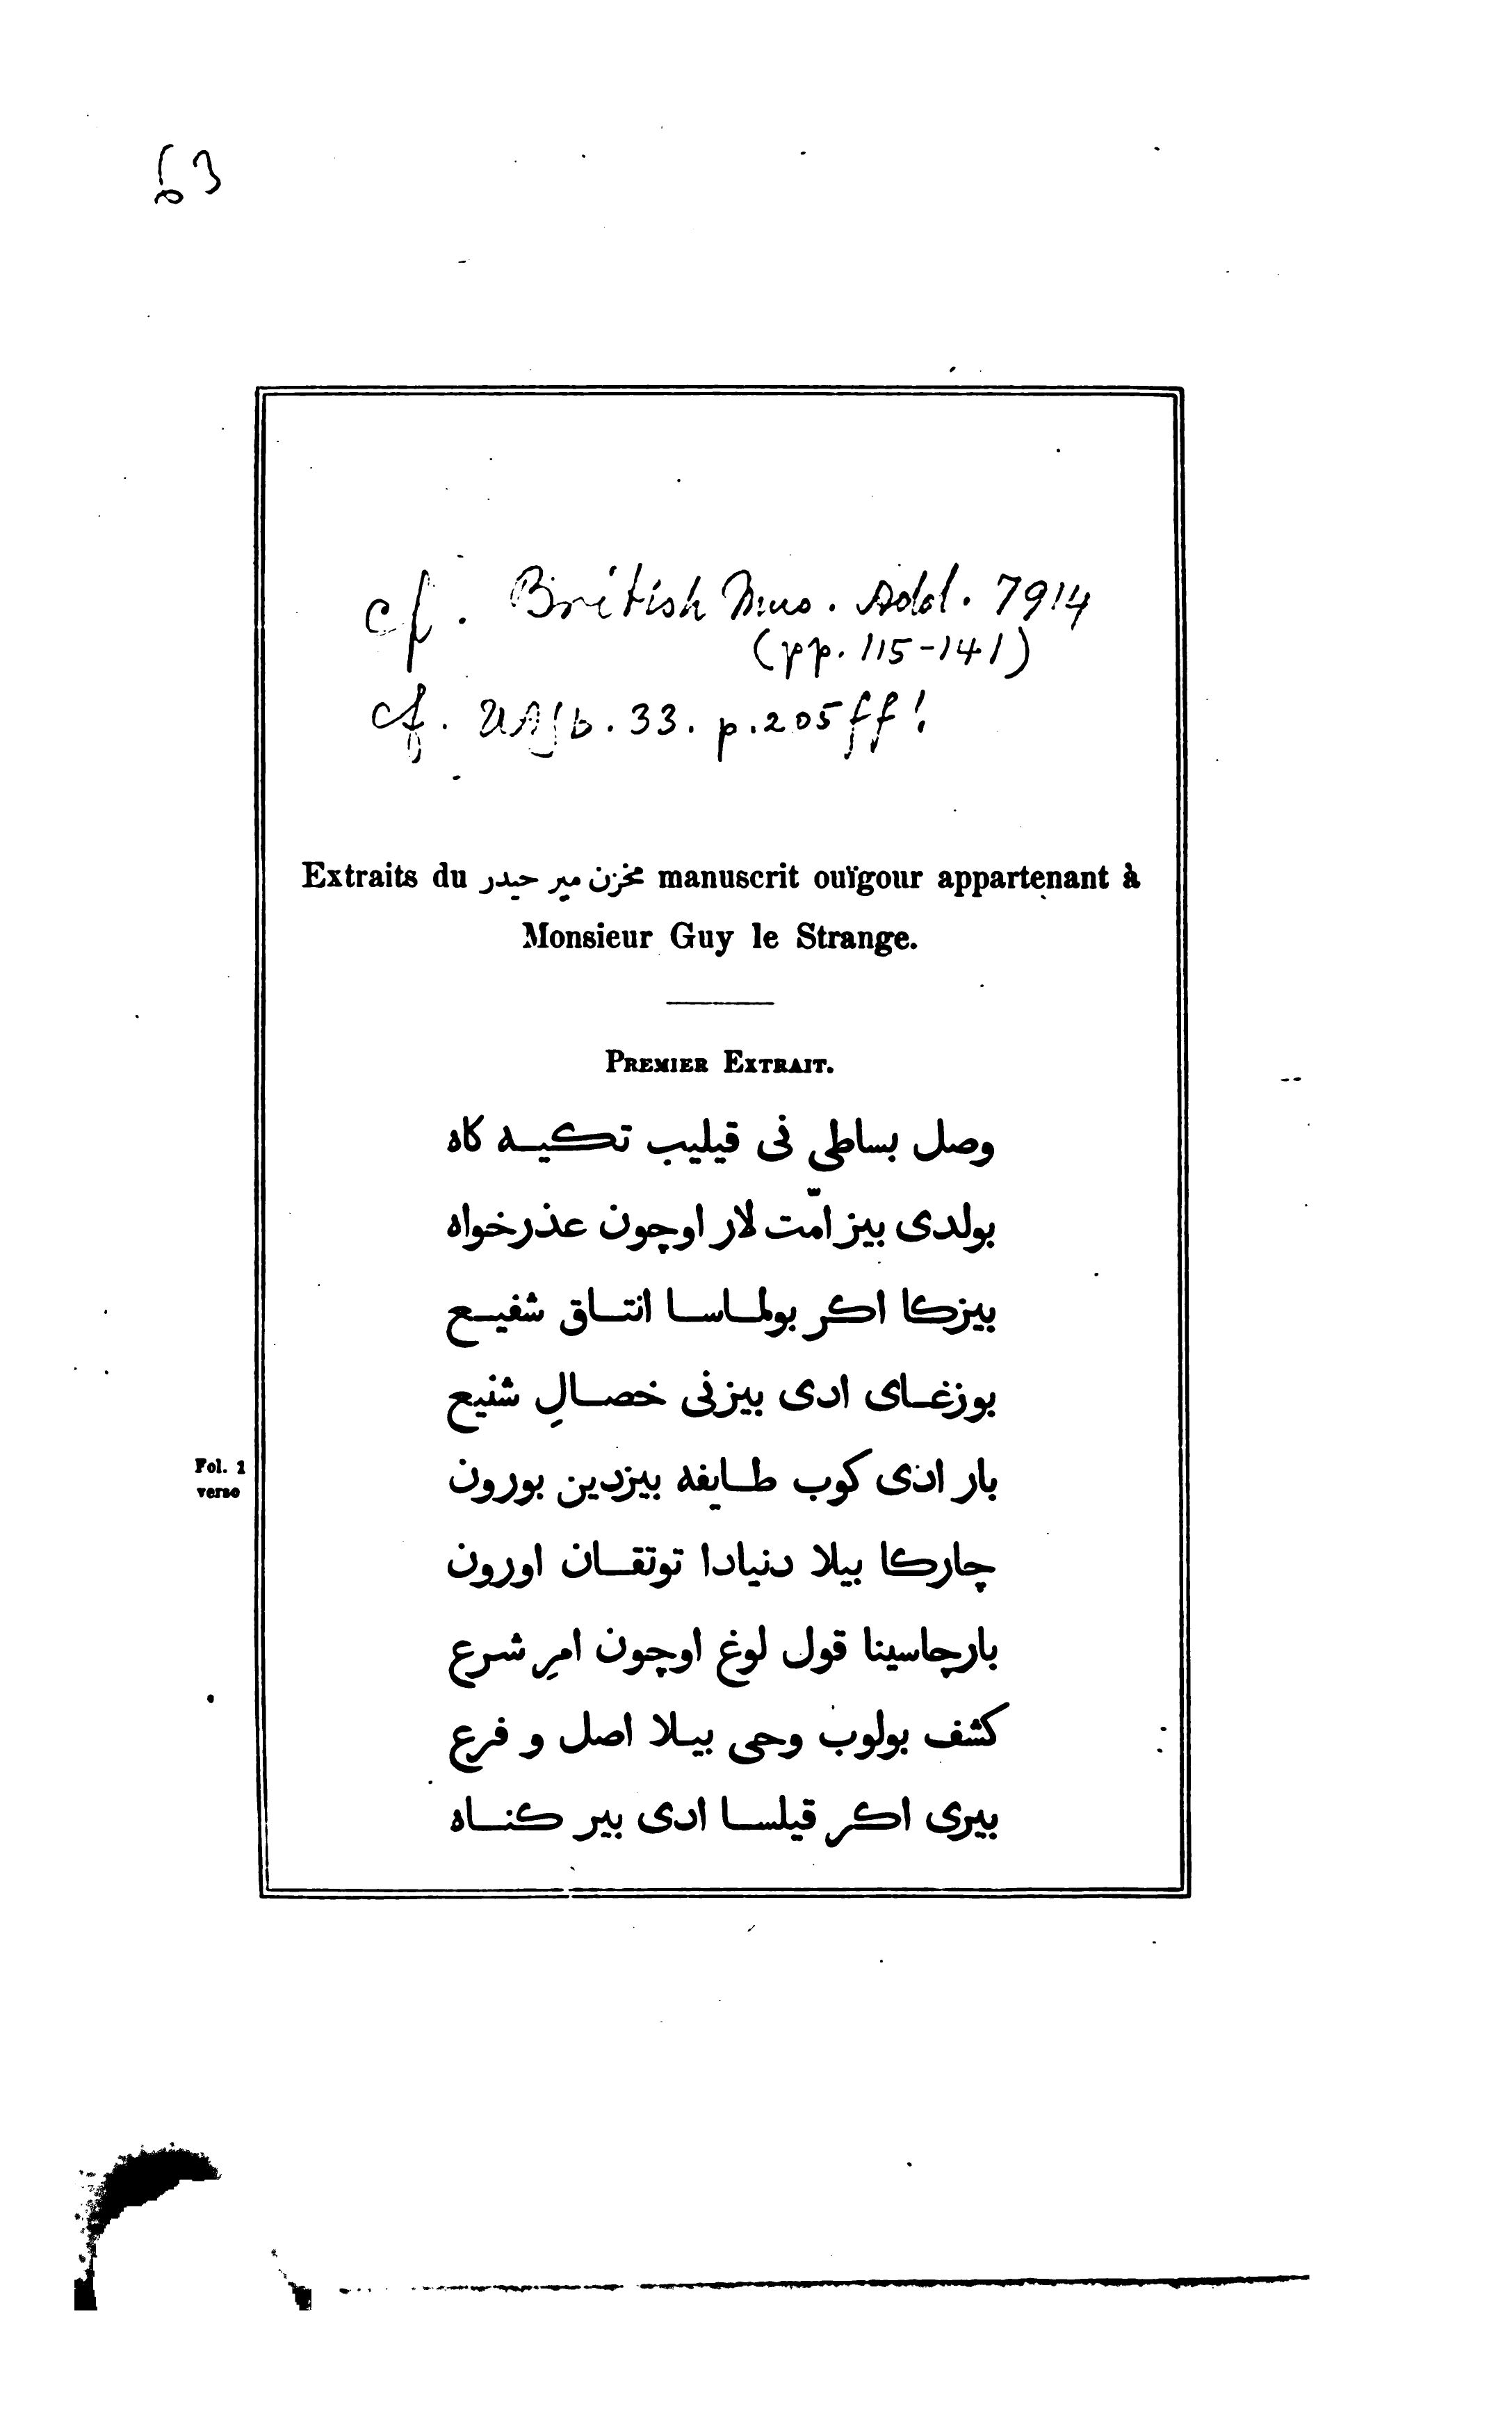 63
cf. British Mus. Add. 7914
(pp. 115-141)
cf. UAJb. 33. p. 205ff!
Extraits du مخزن مير حيدر manuscrit ouïgour appartenant à
Monsieur Guy le Strange.
PREMIER EXTRAIT.
وصل بساطى نى قيليب تكيه كاه
بولدى بيز امّت لار اوچون عذرخواه
بيزكا اكر بولماسا انتاق شفيع
بوزغاى ادى بيزنى خصالِ شنيع
Fol. 1
verso
بار ادى كوب طايفه بيزدين بورون
چاركا بيلا دنيادا توتقان اورون
بارچاسينا قول لوغ اوچون امرِ شرع
كشف بولوب وحى بيلا اصل و فرع
بيرى اكر قيلسا ادى بير كناه